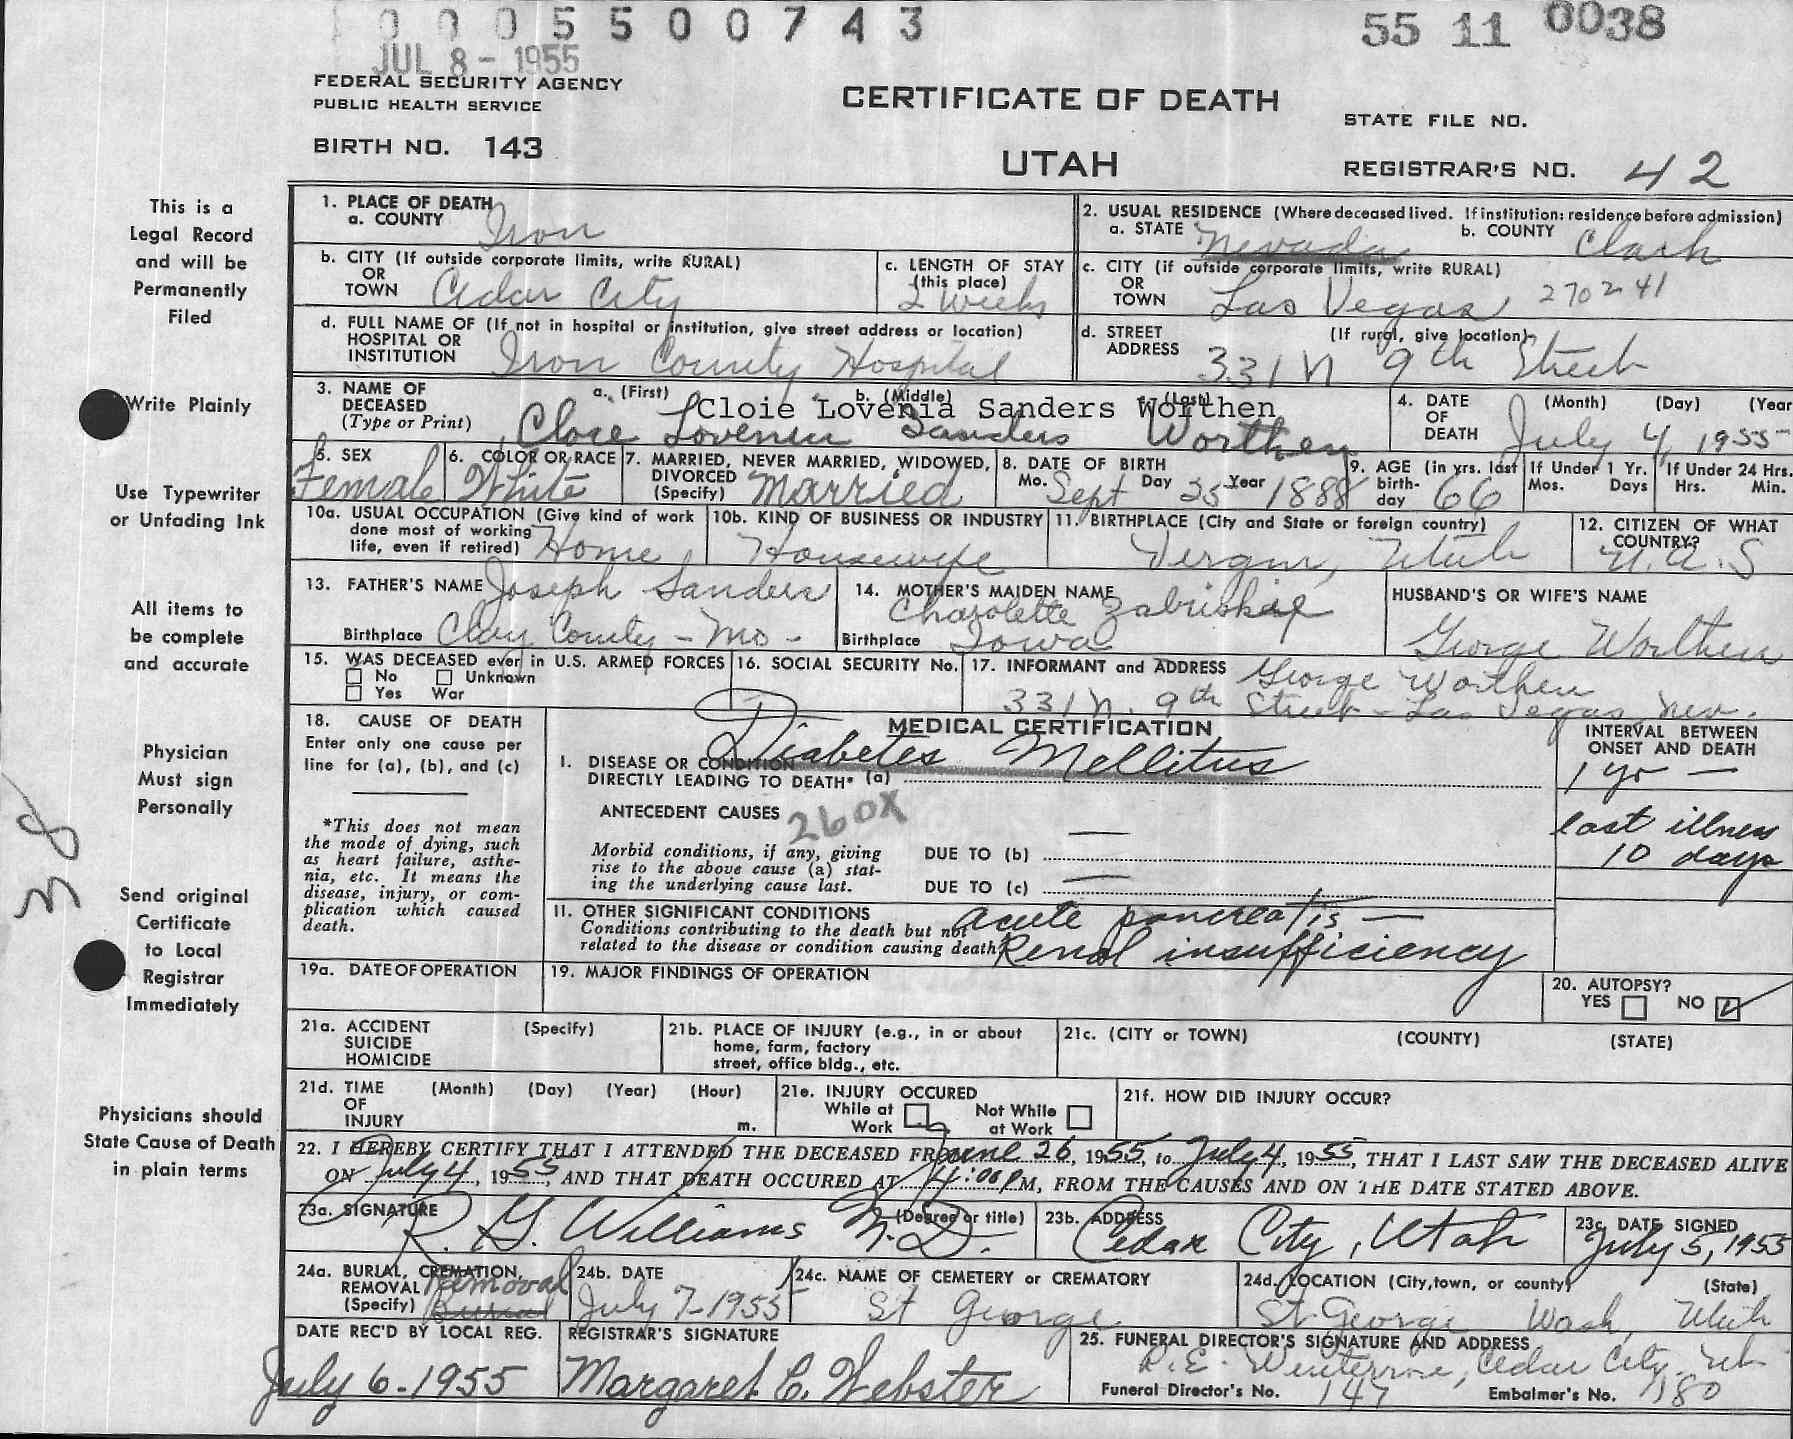 0005500743
55 11 0038
JUL 8 - 1955
FEDERAL SECURITY AGENCY
PUBLIC HEALTH SERVICE
BIRTH NO. 143
CERTIFICATE OF DEATH
UTAH
STATE FILE NO.
REGISTRAR'S NO. 42
This is a
Legal Record
and will be
Permanently
Filed
Write Plainly
Use Typewriter
or Unfading Ink
All items to
be complete
and accurate
Physician
Must sign
Personally
38
Send original
Certificate
to Local
Registrar
Immediately
Physicians should
State Cause of Death
in plain terms
1. PLACE OF DEATH
a. COUNTY Iron
2. USUAL RESIDENCE (Where deceased lived. If institution: residence before admission)
a. STATE Nevada b. COUNTY Clark
b. CITY (If outside corporate limits, write RURAL)
OR
TOWN Cedar City
c. LENGTH OF STAY
(this place)
2 Weeks
c. CITY (if outside corporate limits, write RURAL)
OR
TOWN Las Vegas 2702-41
d. FULL NAME OF (If not in hospital or institution, give street address or location)
HOSPITAL OR
INSTITUTION Iron County Hospital
d. STREET (If rural, give location)
ADDRESS 331 N 9th Street
3. NAME OF a. (First) b. (Middle) (Last)
DECEASED Cloie Lovenia Sanders Worthen
(Type or Print) Cloie Lovenia Sanders Worthen
4. DATE (Month) (Day) (Year
OF
DEATH July 4, 1955
5. SEX
Female
6. COLOR OR RACE
White
7. MARRIED, NEVER MARRIED, WIDOWED,
DIVORCED
(Specify) Married
8. DATE OF BIRTH
Mo. Sept Day 25 Year 1888
9. AGE (in yrs. last
birth-
day 66
If Under 1 Yr.
Mos. Days
If Under 24 Hrs.
Hrs. Min.
10a. USUAL OCCUPATION (Give kind of work
done most of working
life, even if retired) Home
10b. KIND OF BUSINESS OR INDUSTRY
Housewife
11. BIRTHPLACE (City and State or foreign country)
Vergin, Utah
12. CITIZEN OF WHAT
COUNTRY?
U.A.S
13. FATHER'S NAME Joseph Sanders
Birthplace Clay County - Mo -
14. MOTHER'S MAIDEN NAME
Charolette Zabriskie
Birthplace Iowa
HUSBAND'S OR WIFE'S NAME
George Worthen
15. WAS DECEASED ever in U.S. ARMED FORCES
No Unknown
Yes War
16. SOCIAL SECURITY No.
17. INFORMANT and ADDRESS George Worthen
331 N. 9th Street - Las Vegas Nev.
18. CAUSE OF DEATH
Enter only one cause per
line for (a), (b), and (c)
*This does not mean
the mode of dying, such
as heart failure, asthe-
nia, etc. It means the
disease, injury, or com-
plication which caused
death.
MEDICAL CERTIFICATION
I. DISEASE OR CONDITION Diabetes Mellitus
DIRECTLY LEADING TO DEATH* (a)
ANTECEDENT CAUSES 260X
Morbid conditions, if any, giving
rise to the above cause (a) stat-
ing the underlying cause last.
DUE TO (b) —
DUE TO (c) —
INTERVAL BETWEEN
ONSET AND DEATH
1 yr —
last illness
10 days
II. OTHER SIGNIFICANT CONDITIONS acute pancreatis —
Conditions contributing to the death but not
related to the disease or condition causing death. Renal insufficiency
19a. DATE OF OPERATION
19. MAJOR FINDINGS OF OPERATION
20. AUTOPSY?
YES NO ✓
21a. ACCIDENT (Specify)
SUICIDE
HOMICIDE
21b. PLACE OF INJURY (e.g., in or about
home, farm, factory
street, office bldg., etc.
21c. (CITY or TOWN) (COUNTY) (STATE)
21d. TIME (Month) (Day) (Year) (Hour)
OF
INJURY m.
21e. INJURY OCCURED
While at Work Not While at Work
21f. HOW DID INJURY OCCUR?
22. I HEREBY CERTIFY THAT I ATTENDED THE DECEASED FROM June 26, 1955, to July 4, 1955, THAT I LAST SAW THE DECEASED ALIVE
ON July 4, 1955, AND THAT DEATH OCCURED AT 4:00 P M, FROM THE CAUSES AND ON THE DATE STATED ABOVE.
23a. SIGNATURE (Degree or title)
R. G. Williams M.D.
23b. ADDRESS
Cedar City, Utah
23c. DATE SIGNED
July 5, 1955
24a. BURIAL, CREMATION,
REMOVAL Removal
(Specify) Burial
24b. DATE
July 7-1955
24c. NAME OF CEMETERY or CREMATORY
St George
24d. LOCATION (City, town, or county) (State)
St. George Wash, Utah
DATE REC'D BY LOCAL REG.
July 6-1955
REGISTRAR'S SIGNATURE
Margaret C. Webster
25. FUNERAL DIRECTOR'S SIGNATURE AND ADDRESS
Cedar City, Ut
Funeral Director's No. 147 Embalmer's No. 180